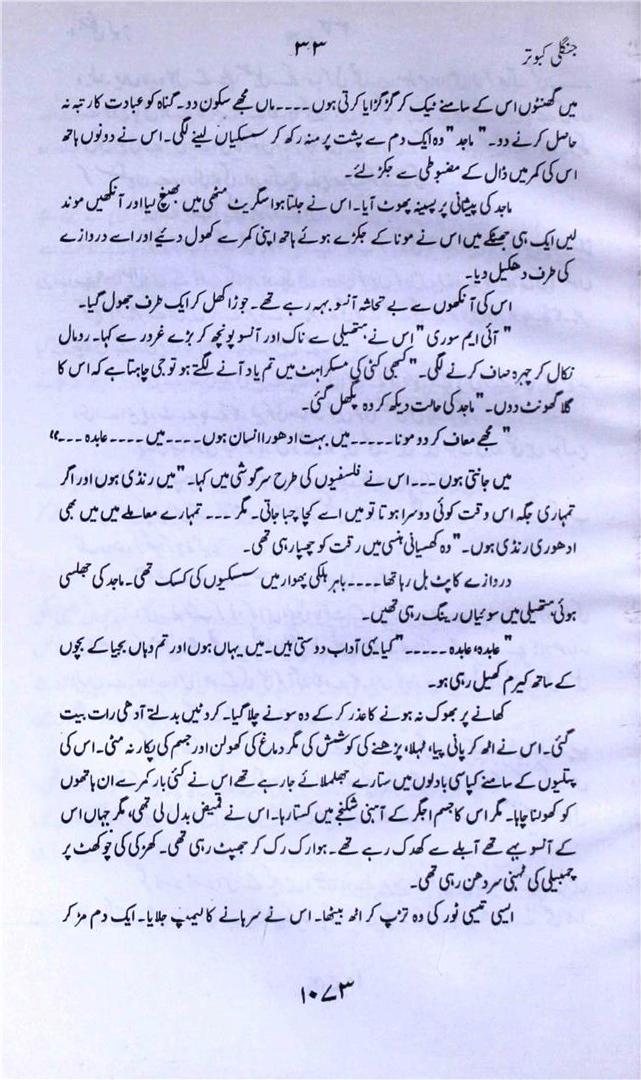 جنگلی کبوتر
۳۳
میں گھنٹوں اس کے سامنے ٹیک کر گڑ گڑایا کرتی ہوں۔۔۔۔ماں مجھے سکون دو۔گناہ کو عبادت کا رتبہ نہ
حاصل کرنے دو۔" ماجد "وہ ایک دم سے پشت پر منہ رکھ کر سسکیاں لینے لگی۔ اس نے دونوں ہاتھ
اس کی کمر میں ڈال کے مضبوطی سے جکڑ لئے۔
ماجد کی پیشانی پر پسینہ پھوٹ آیا۔ اس نے جلتا ہوا سگریٹ مٹھی میں بھنچ لیا اور آنکھیں موند
لیں ایک ہی جھٹکے میں اس نے مونا کے جکڑے ہوئے ہاتھ اپنی کمر سے کھول دئیے اور اسے دروازے
کی طرف دھکیل دیا۔
اس کی آنکھوں سے بے تحاشہ آنسو بہہ رہے تھے۔ جوڑا کھل کر ایک طرف جھول گیا۔
" آئی ایم سوری " اس نے ہتھیلی سے ناک اور آنسو پونچھ کر بڑے غرور سے کہا۔ رومال
نکال کر چہرہ صاف کرنے لگی۔ " کبھی کنی کی مسکراہٹ میں تم یاد آنے لگتے ہو تو جی چاہتا ہے کہ اس کا
گلا گھونٹ دوں۔" ماجد کی حالت دیکھ کر وہ پگھل گئی۔
" مجھے معاف کر دو مونا۔۔۔۔۔میں بہت ادھورا انسان ہوں۔۔۔۔میں۔۔۔۔عابدہ۔۔۔"
میں جانتی ہوں۔۔۔اس نے فلسفیوں کی طرح سرگوشی میں کہا۔ "میں رنڈی ہوں اور اگر
تمہاری جگہ اس وقت کوئی دوسرا ہوتا تو میں اسے کچا چبا جاتی۔ مگر۔۔۔تمہارے معاملے میں میں بھی
ادھوری رنڈی ہوں۔" وہ کھسیانی ہنسی میں رقت کو چھپا رہی تھی۔
دروازے کا پٹ ہل رہا تھا۔۔۔۔باہر ہلکی پھوار میں سسکیوں کی کسک تھی۔ ماجد کی جھلسی
ہوئی ہتھیلی میں سوئیاں رینگ رہی تھیں۔
" عابدہ، عابدہ۔۔۔۔۔" کیا یہی آداب دوستی ہیں۔ میں یہاں ہوں اور تم وہاں بجیا کے بچوں
کے ساتھ کیرم کھیل رہی ہو۔
کھانے پر بھوک نہ ہونے کا عذر کر کے وہ سونے چلا گیا۔ کروٹیں بدلتے آدھی رات بیت
گئی۔ اس نے اٹھ کر پانی پیا، ٹہلا، پڑھنے کی کوشش کی مگر دماغ کی کھولن اور جسم کی پکار نہ مٹی۔ اس کی
پتلیوں کے سامنے کپاسی بادلوں میں ستارے جھلملائے جا رہے تھے اس نے کئی بار کمر سے ان ہاتھوں
کو کھولنا چاہا۔ مگر اس کا جسم اجگر کے آہنی شکنجے میں کستا رہا۔ اس نے قمیض بدل لی تھی، مگر جہاں اس
کے آنسو بہے تھے آبلے سے کھدک رہے تھے۔ ہوا رک رک کر جھپٹ رہی تھی۔ کھڑکی کی چوکھٹ پر
چمبیلی کی ٹہنی سر دھن رہی تھی۔
ایسی تیسی نور کی وہ تڑپ کر اٹھ بیٹھا۔ اس نے سرہانے کا لیمپ جلایا۔ ایک دم مڑ کر
۱۰۷۳